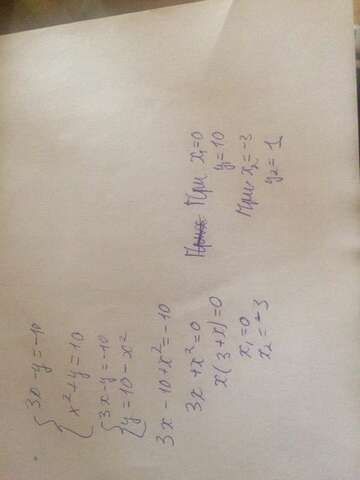 3x-y=-10
x²+y=10
3x-y=-10
y=10-x²
3x-10+x²=-10
3x+x²=0
x(3+x)=0
x₁=0
x₂=-3
При x₁=0
y₁=10
При x₂=-3
y₂=1